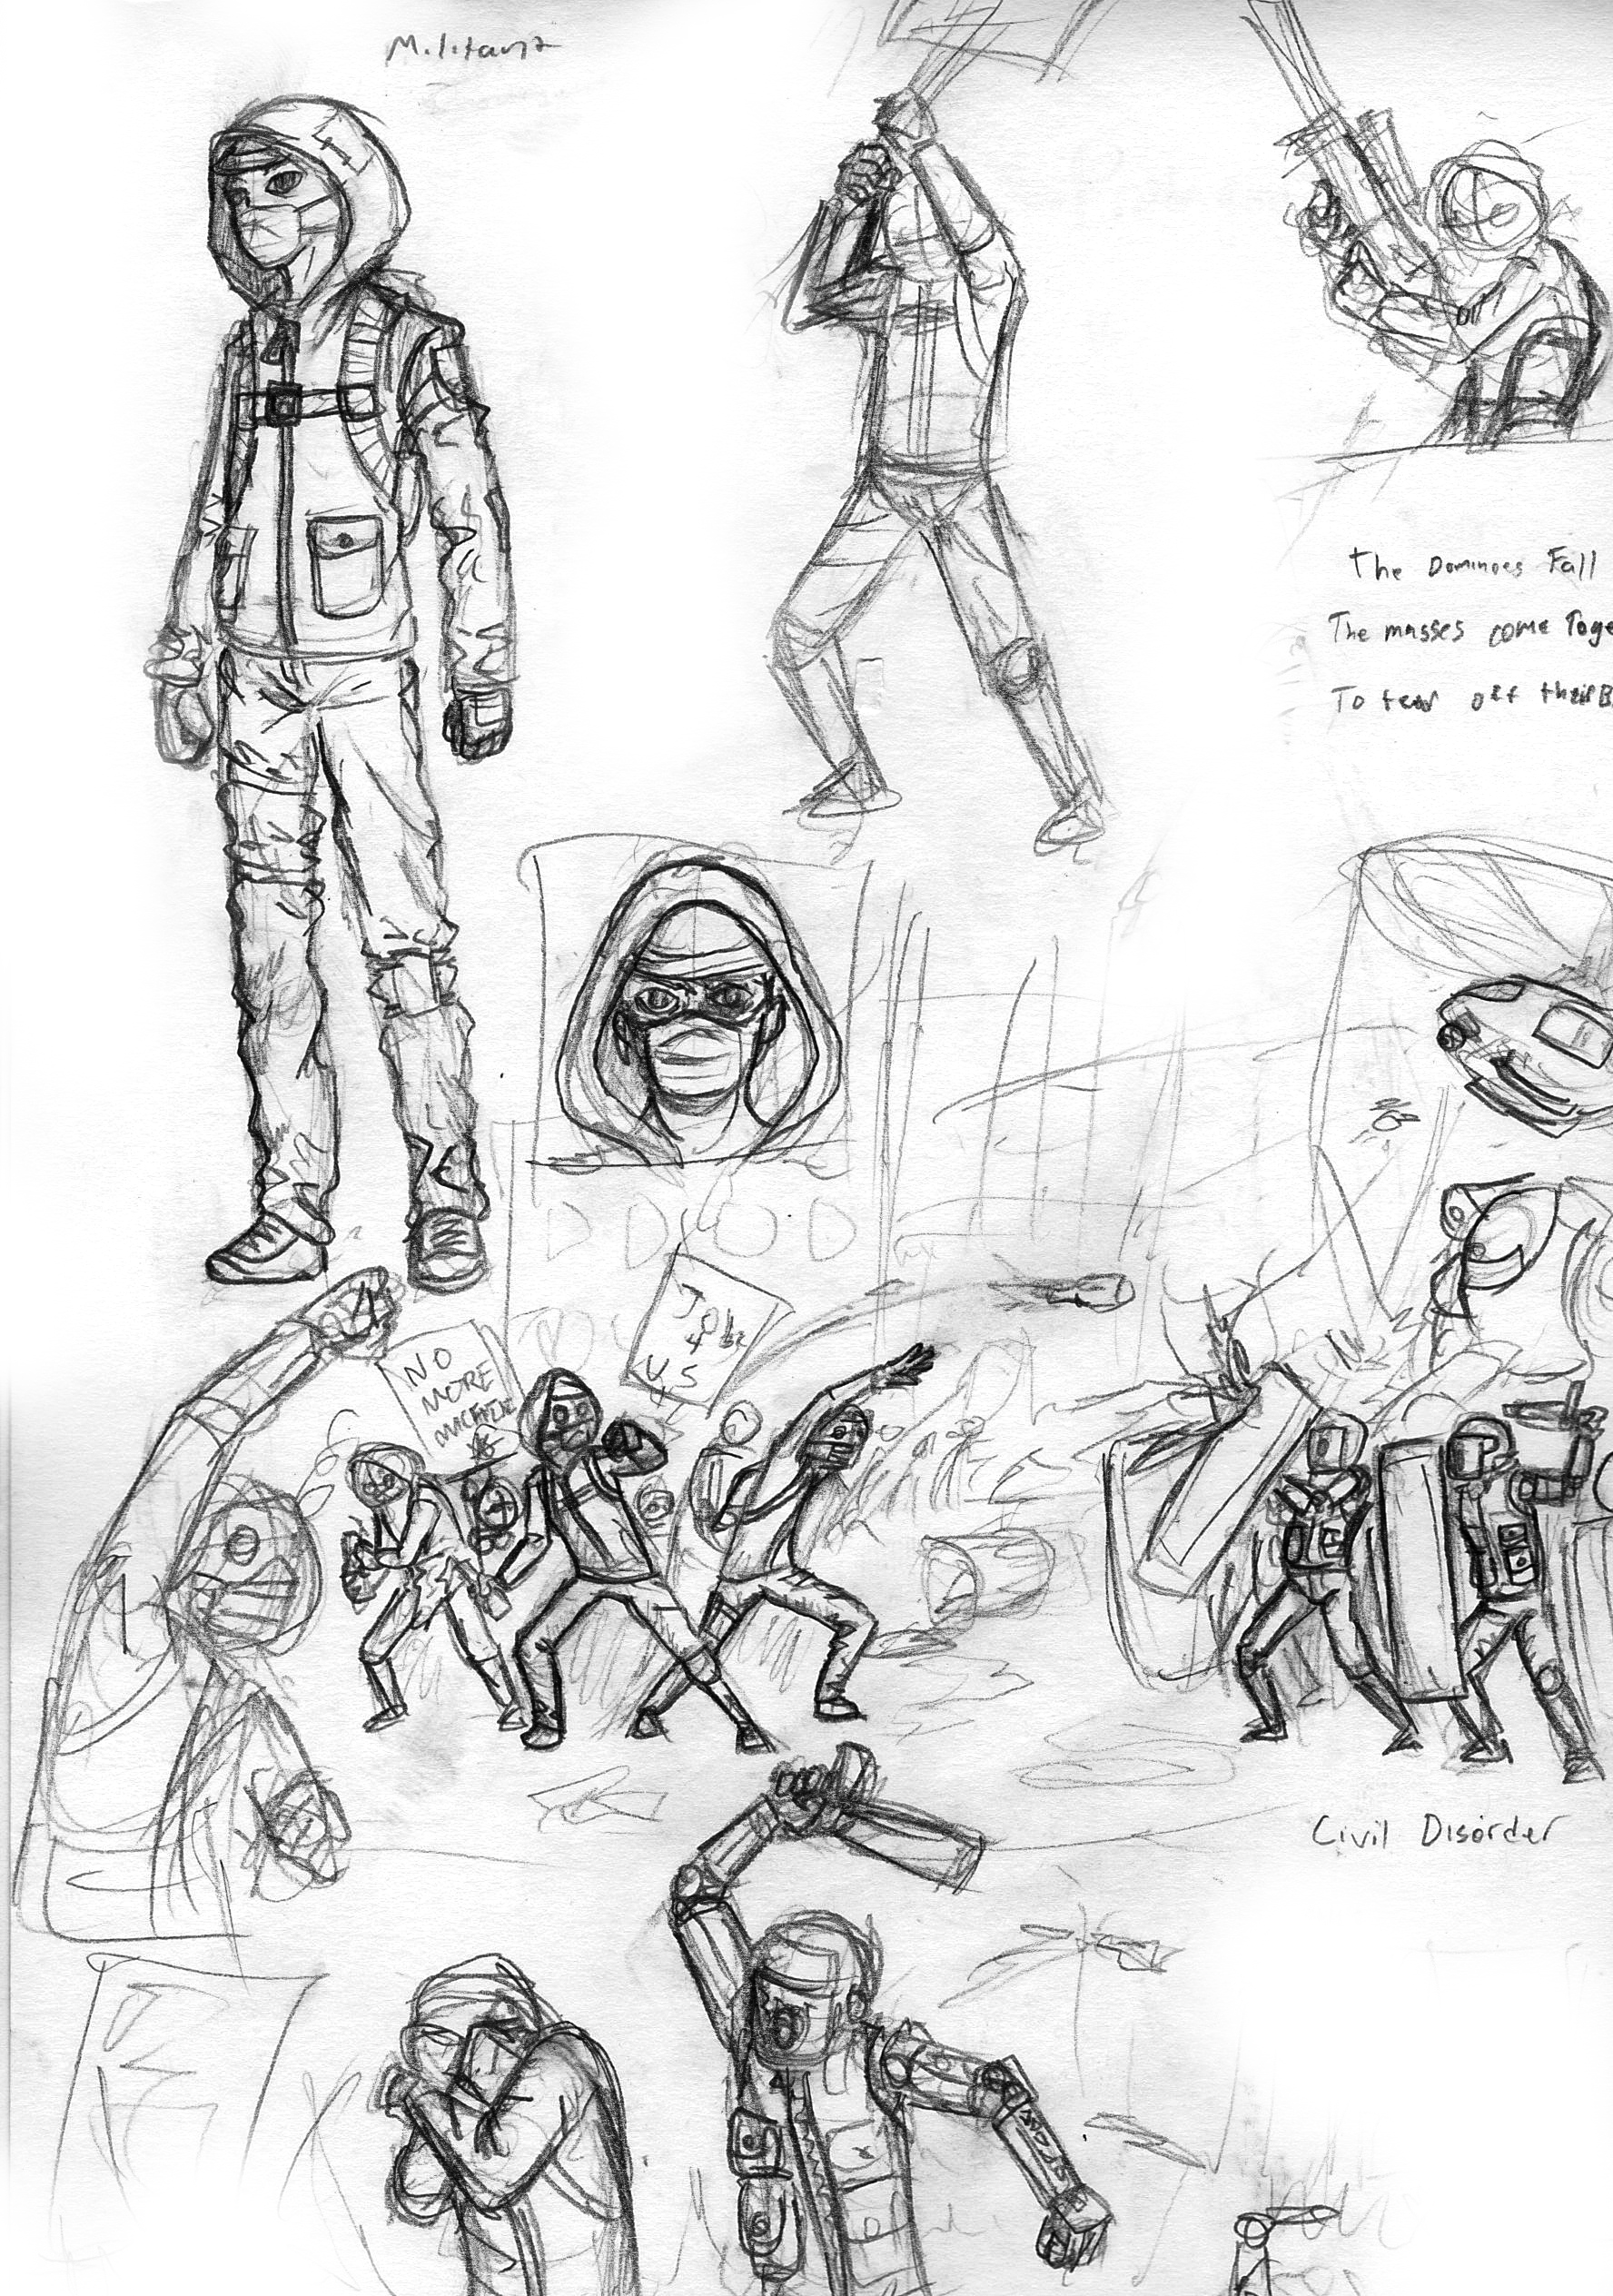 The Dominoes Fall
The masses come Toge
To tear off their B
NO
MORE
JObs
4
US
Civil Disorder